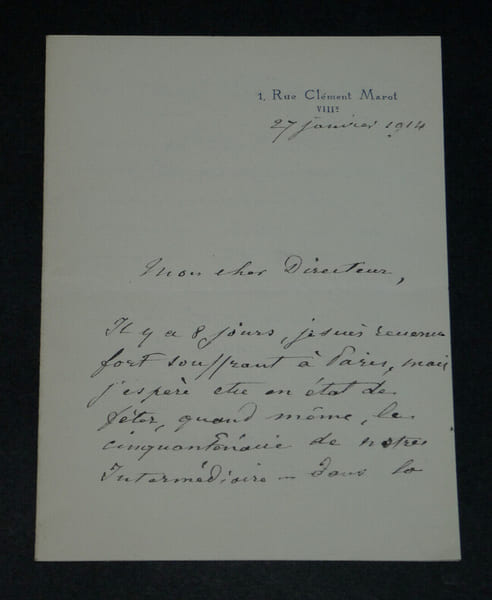 1, Rue Clément Marot
VIIIe
27 janvier 1914
Mon cher Directeur,
Il y a 8 jours, je suis revenu
fort souffrant à Paris, mais
j'espère etre en état de
fêter, quand même, le
cinquantenaire de notre
Intermédiaire — dans la